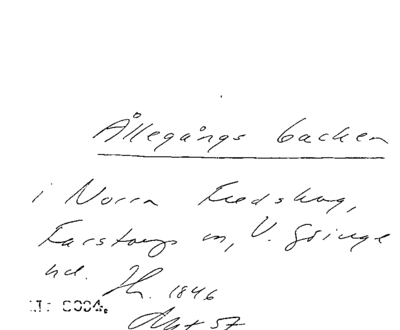 Ållegångs backen
i Norra Fredskog,
Farstorps sn, V. Göinge
hd. Th. 1846
Akt 57